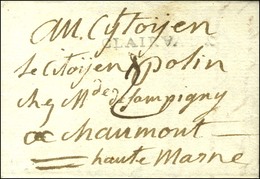 au Cytoijen
BLAIZ
Le Citoijen polin
chez Md de Campigny
a chaumont
haute Marne